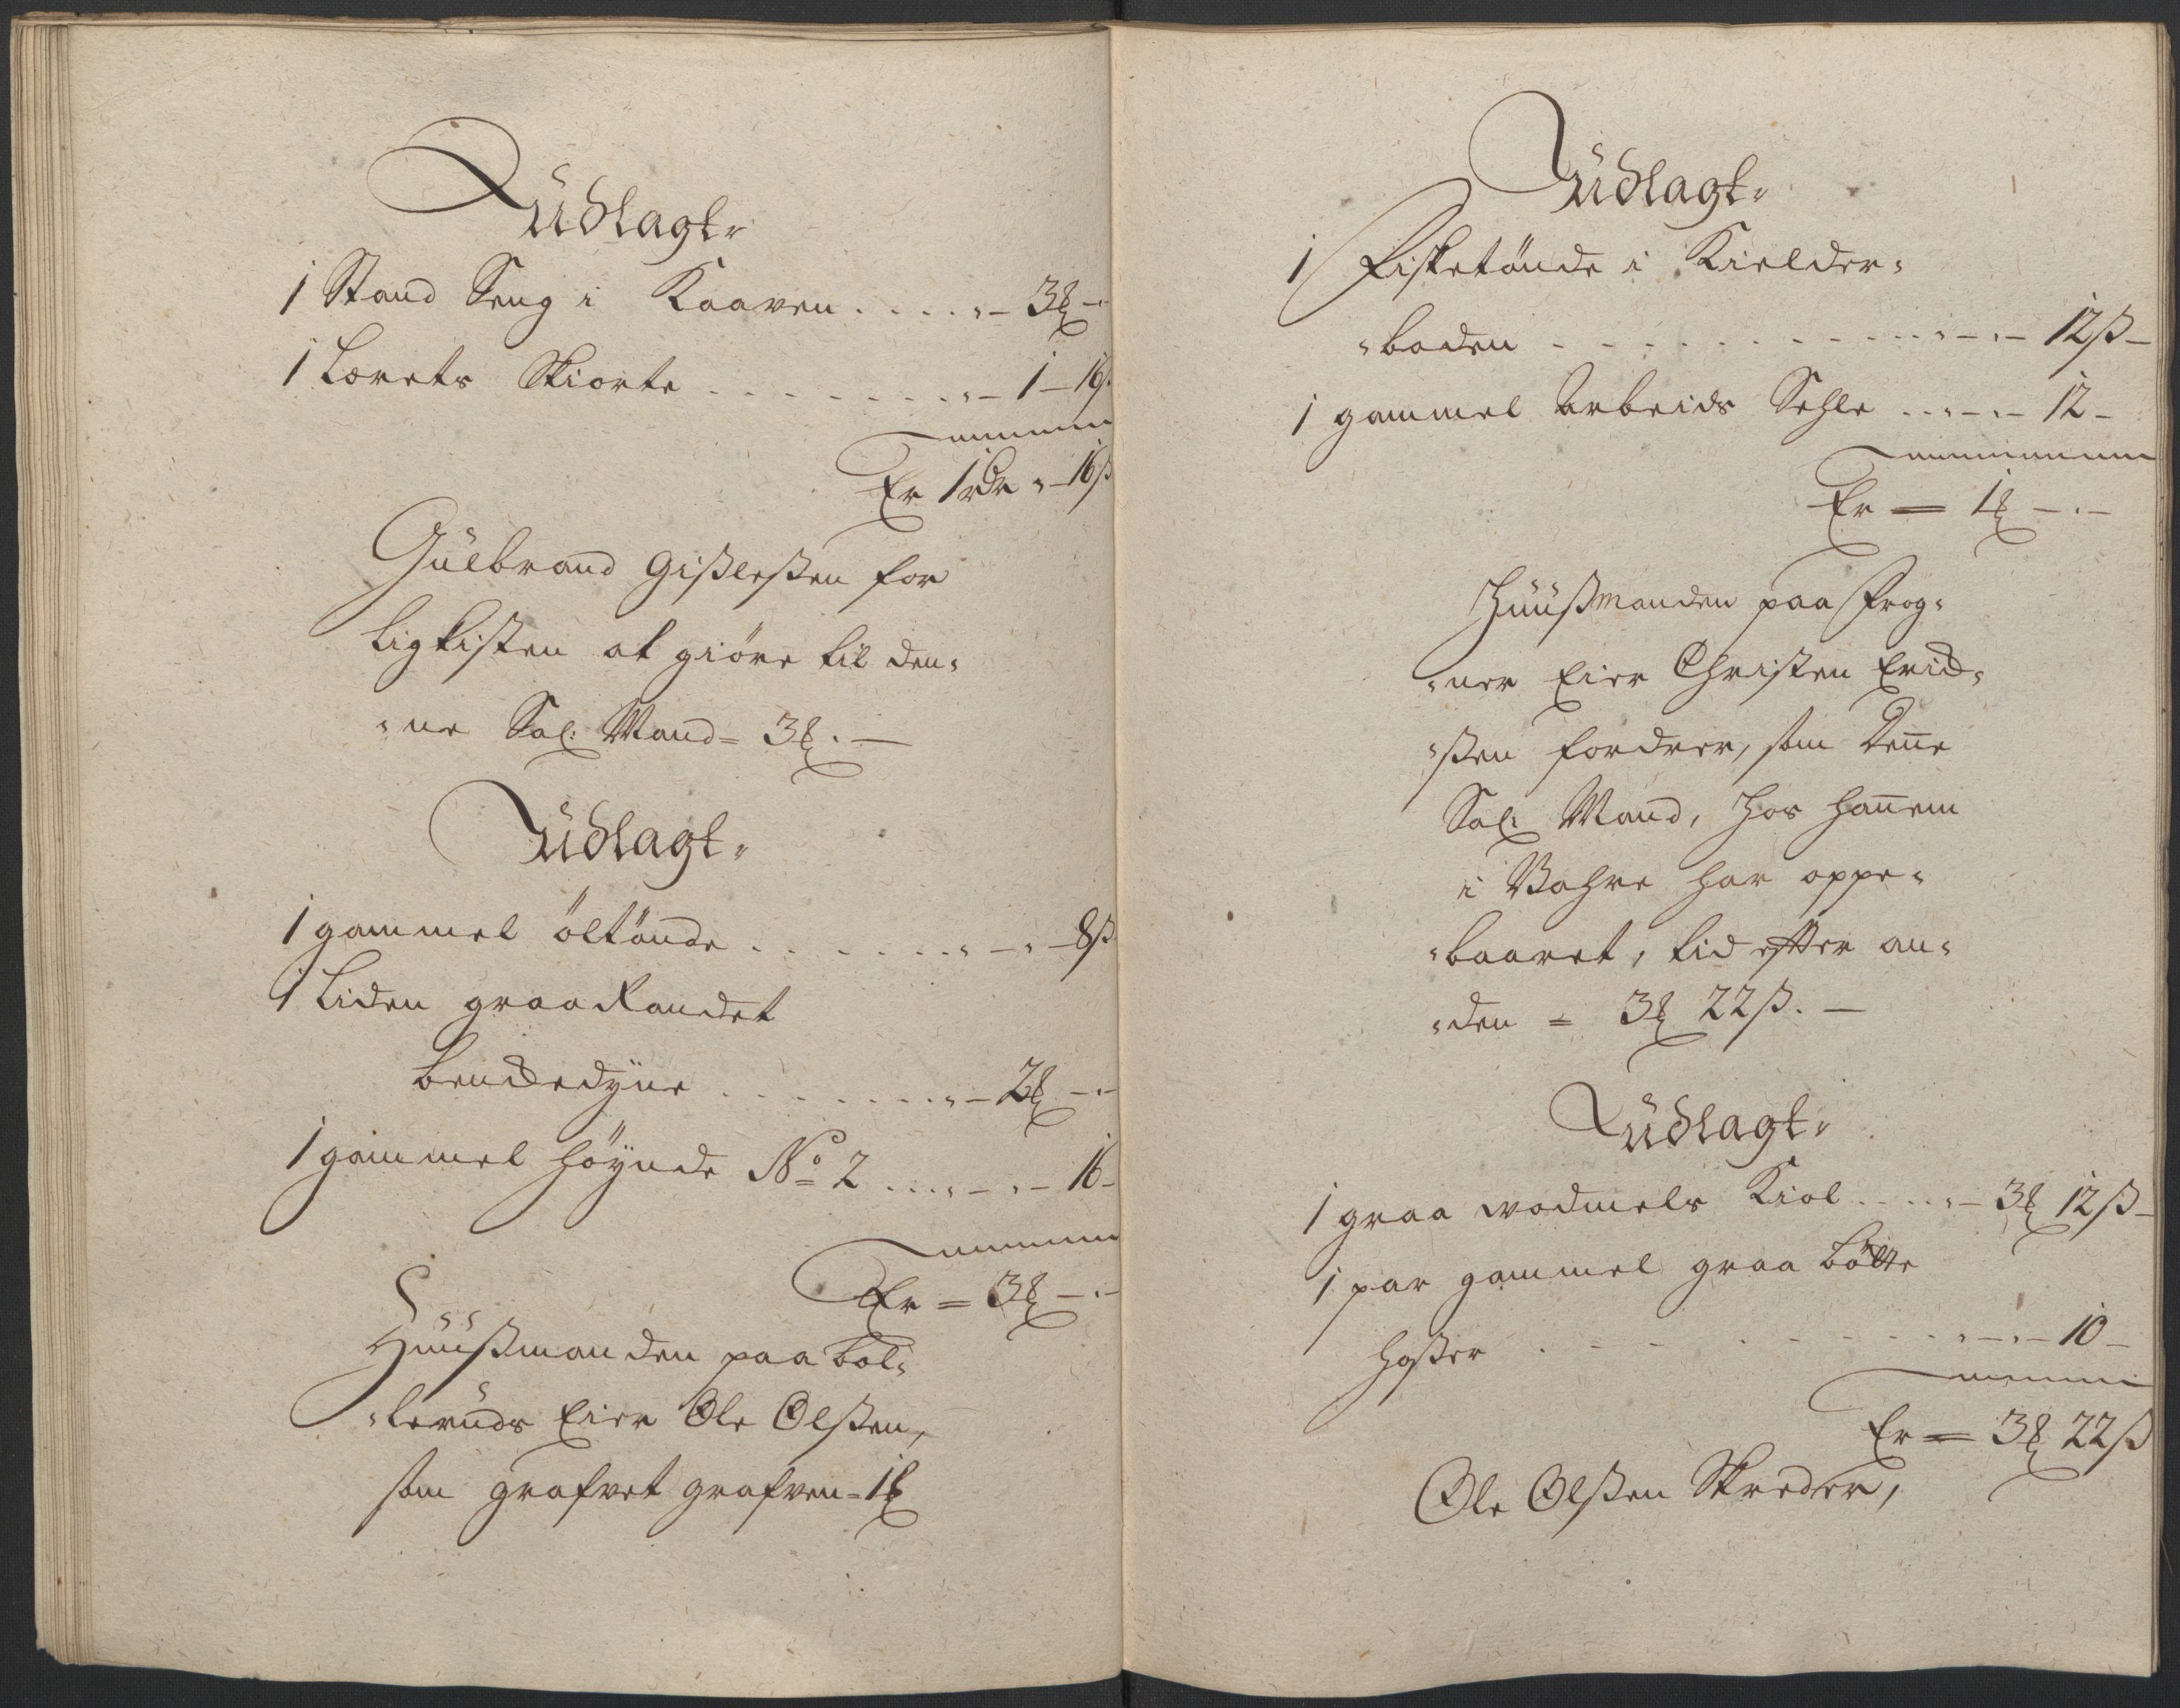 Udlagt
1 Stand Seng i Kaaven . . . . . " – 3 ℔ – " –
1 Lærets Skiorte . . . . . . . . " – 1 – 16 ß
Er 1 rdr " – 16 ß
Gulbrand Gisleßen for
ligkisten at giöre til den-
ne Sal: Mand = 3 ℔ . –
Udlagt
1 gammel öltönde . . . . . . . " – " – 8 ß
1 liden graaRandet
benckedyne . . . . . . . . " – 2 ℔ – " –
1 gammel höynde No 2 . . . . " – " – 16 –
Er = 3 ℔ – " –
Huußmanden paa bol-
leruds Eier Ole Olßen,
som grafvet grafven = 1 ℔
Udlagt
1 Fisketönde i Kielder-
boden . . . . . . . . . . . . . " – " – 12 ß –
1 gammel Arbeids Sehle . . . " – " – 12 –
Er = 1 ℔ – " –
Huußmanden paa Frog-
ner Eier Christen Erick-
ßen fordrer, som denne
Sal: Mand, hos hannem
i Vahre har oppe-
baaret, tid efter an-
den = 3 ℔ 22 ß . –
Udlagt
1 graa vadmels Kiol . . . . " – 3 ℔ 12 ß –
1 par gammel graa bötte
hoßer . . . . . . . . . . . " – " – 10 –
Er = 3 ℔ 22 ß
Ole Olßen Skreder,